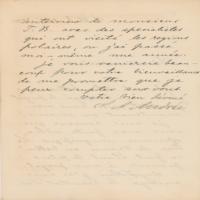 entrevues de monsieur
T. B. avec des spécialistes
qui ont visité les régions
polaires, où j'ai passé
moi-même une année.
Je vous remercie beau-
coup pour votre bienveillance
de me promettre que je
peux compter sur vous.
Votre bien dévoué
S. A. Andrée